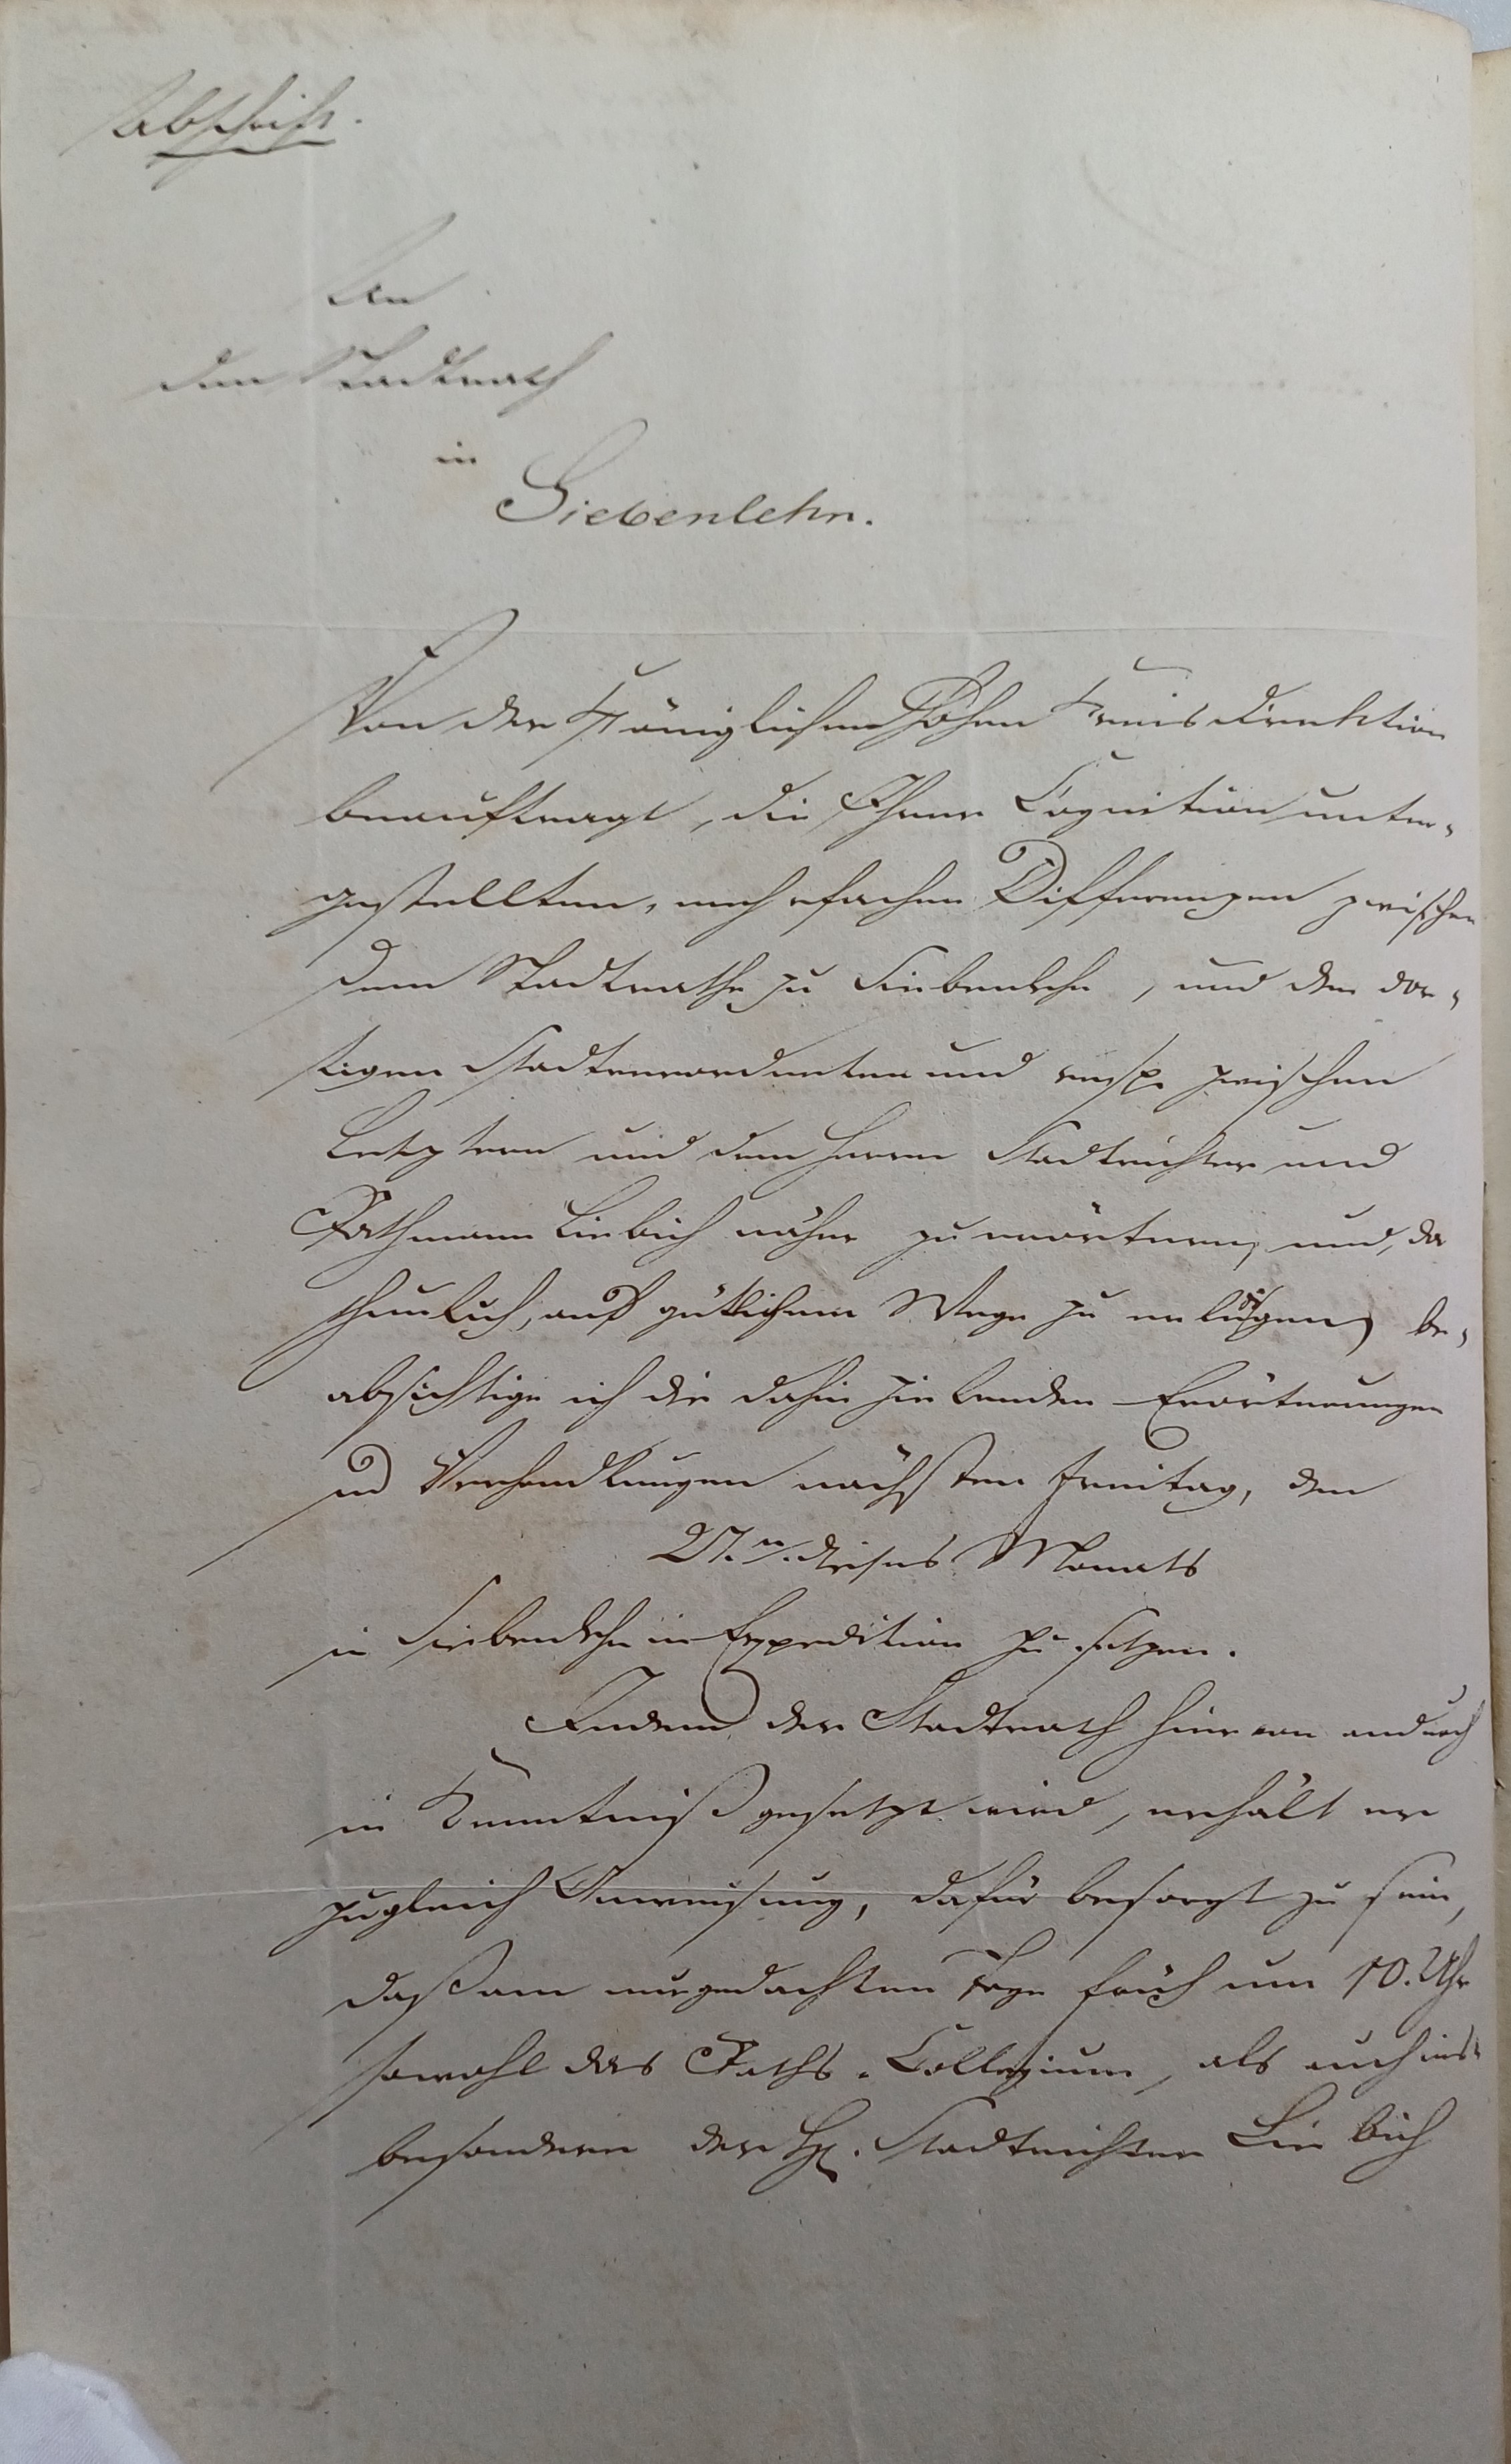 Abschrift.
An
den Stadtrath
in
Siebenlehn.
Von der Königlichen Hohen Kreisdirektion
beauftragt, die Ihrer Cognition unter-
gestellten, mehrfachen Differenzen zwischen
dem Stadtrathe zu Siebenlehn, und den dor-
tigen Stadtverordneten und resp. zwischen
Letztern und dem Herrn Stadtrichter und
Rathmann Liebich näher zu erörtern, und, da
thunlich, auf gütlichem Wege zu erledigen, be-
absichtige ich die dahin zielenden Erörterungen
und Verhandlungen nächsten Freitag, den
27.n. dieses Monats
in Siebenlehn in Expedition zu setzen.
Indem der Stadtrath hiervon andurch
in Kenntniß gesetzt wird, erhält er
zugleich Anweisung, dafür besorgt zu sein,
daß am nurgedachten Tage früh um 10. Uhr
sowohl das Raths-Collegium, als auch ins-
besondere der Hr. Stadtrichter Liebich